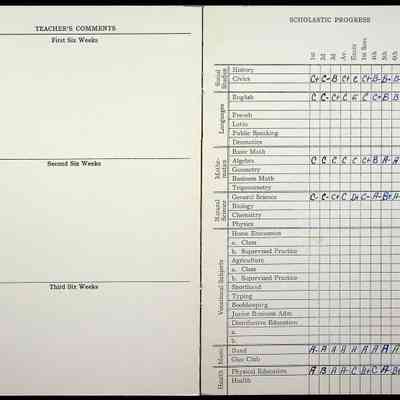 TEACHER'S COMMENTS
First Six Weeks
Second Six Weeks
Third Six Weeks
SCHOLASTIC PROGRESS
1st 2d 3d Av. Exam 1st Sem. 4th 5th 6th
Social Studies
History
Civics C+ C- B C+ C C+ B- B- B-
Languages
English C C- C+ C E C C+ B B-
French
Latin
Public Speaking
Dramatics
Mathematics
Basic Math
Algebra C C C C C C+ B A- A-
Geometry
Business Math
Trigonometry
Natural Science
General Science C- C- C+ C D+ C- A- B+ A-
Biology
Chemistry
Physics
Vocational Subjects
Home Economics
a. Class
b. Supervised Practice
Agriculture
a. Class
b. Supervised Practice
Shorthand
Typing
Bookkeeping
Junior Business Adm.
Distributive Education
a.
b.
Music
Band A- A A A A A A A A
Glee Club
Health
Physical Education A B A A- C B+ C A- B+
Health